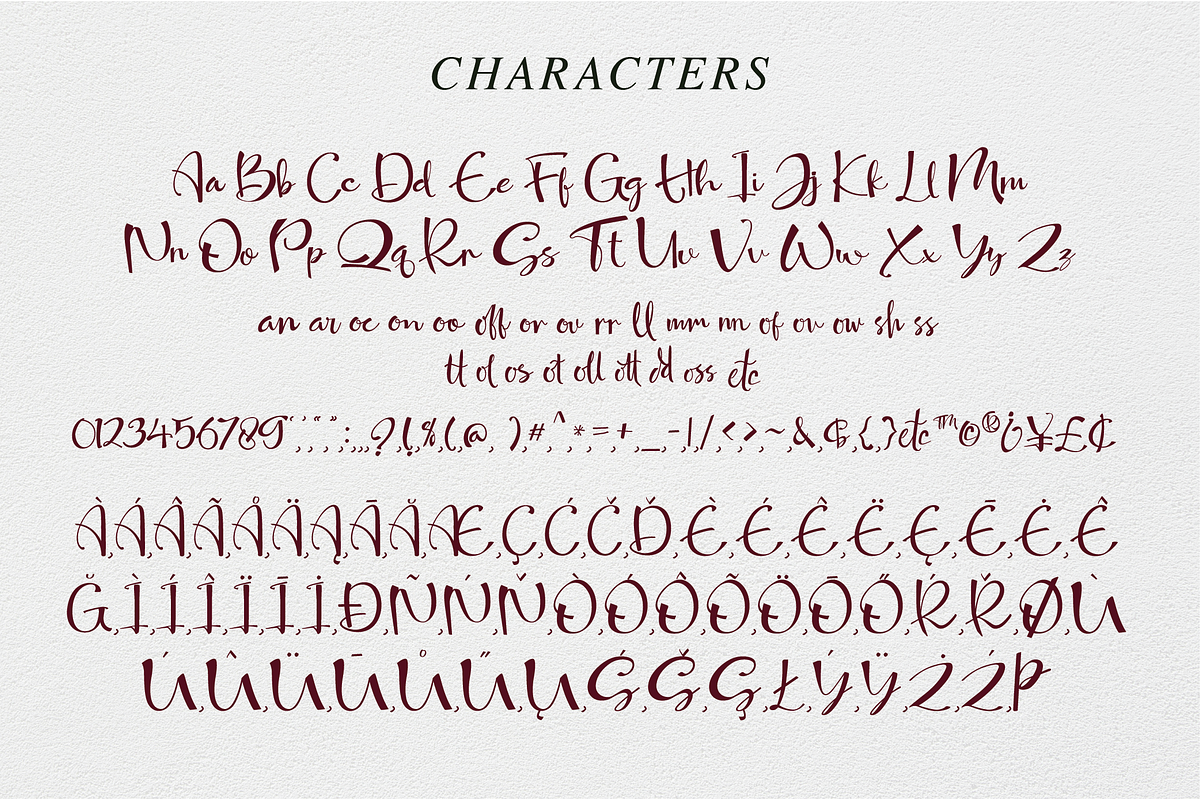 CHARACTERS
Aa Bb Cc Dd Ee Ff Gg Hh Ii Jj Kk Ll Mm
Nn Oo Pp Qq Rr Ss Tt Uu Vv Ww Xx Yy Zz
an ar oc on oo off or ou rr ll mm nn of ov ow sh ss
tt ol os ot oll ott dd oss etc
0123456789‘,’,“,”,:,.,,?,!,%,(,@, ),#,^,*,=,+,_,-,|,/,<,>,~,&,$,{,}etc™©®¿¥£₵
À,Á,Â,Ã,Å,Ä,Ą,Ā,Ă,Æ,Ç,Ć,Č,Ď,È,É,Ê,Ë,Ę,Ē,Ė,Ê
Ğ,Ì,Í,Î,Ï,Ī,İ,Đ,Ñ,Ń,Ň,Ò,Ó,Ô,Õ,Ö,Ō,Ő,Ŕ,Ř,Ø,Ù
Ú,Û,Ü,Ū,Ů,Ű,Ų,Ś,Š,Ş,Ł,Ý,Ÿ,Ż,Ź,Þ